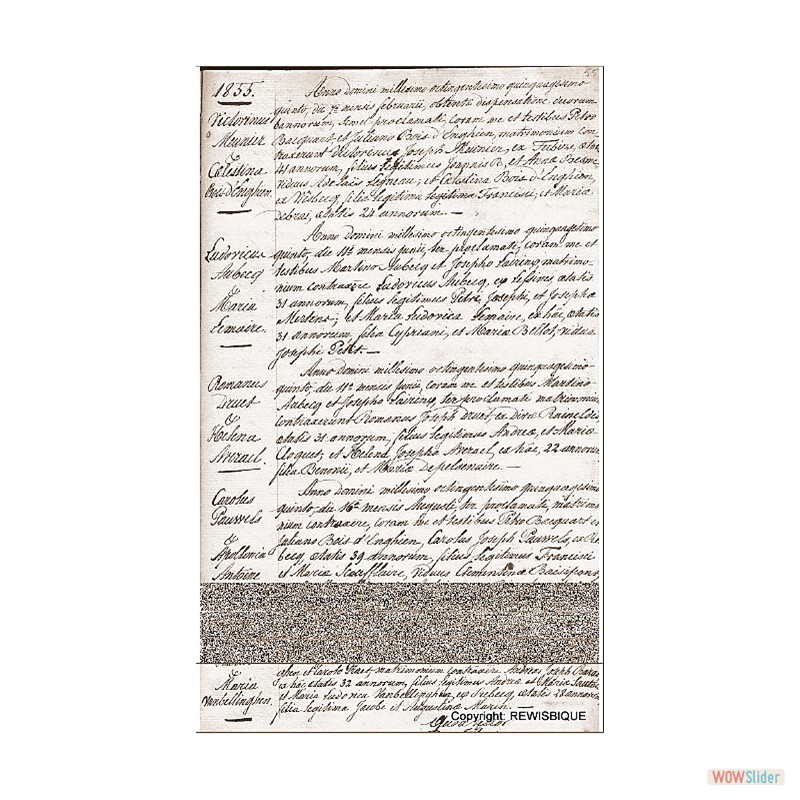 55
1855.
Victorinus
Meunier
&
Celestina
Bois d'Enghien.
Anno domini millesimo octingentesimo quinquagesimo
quinto, die mensis februarii, obtenta dispensatione duorum
bannorum, semel proclamati, coram me et testibus Petro
Bacquart et Juliano Bois d'Enghien, matrimonium con-
traxerunt Victorinus Joseph Meunier, ex Tubize, ætatis
41 annorum, filius legitimus Joannis B., et Annæ
viduus Adelais Ligneau; et Celestina Bois d'Enghien,
ex Wisbecq, filia legitima Francisci, et Maria
Debras, ætatis 24 annorum.—
Ludovicus
Aubecq
&
Maria
Lemaire.
Anno domini millesimo octingentesimo quinquagesimo
quinto, die mensis junii, ter proclamati, coram me et
testibus Martino Aubecq et Josepho matrimo-
nium contraxere Ludovicus Aubecq, ex ætatis
31 annorum, filius legitimus Petri Josephi, et Josepha
Mertens; et Maria Ludovica Lemaire, ex hac, ætatis
31 annorum, filia Cypriani, et Maria Bellot, vidua
Josephi Petit.—
Romanus
Druet
&
Helena
Avezael.
Anno domini millesimo octingentesimo quinquagesimo
quinto, die mensis junii, coram me et testibus Martino
Aubecq et Josepho ter proclamati matrimonium
contraxerunt Romanus Joseph Druet, ex
ætatis 31 annorum, filius legitimus Andreæ, et Maria
Cloquet; et Helena Josepha Avezael, ex hac, 22 annorum
filia et Maria Depelsenaire.—
Carolus
Pauwels
&
Apollonia
Antoine
Anno domini millesimo octingentesimo quinquagesimo
quinto, die 16ª mensis Augusti, ter proclamati, matrimo-
nium contraxere, coram me et testibus Petro Bacquart et
Juliano Bois d'Enghien, Carolus Joseph Pauwels, ex
becq, ætatis 39 annorum, filius legitimus Francisci
et Maria viduus Clementinæ
&
Maria
Vanbellinghen.
et Carolo matrimonium contraxere Andreas Joseph
ex hac, ætatis 32 annorum, filius legitimus Andreæ et Maria
et Maria Ludovica Vanbellinghen, ex ætatis 28 annorum
filia legitima Jacobi et Augustinæ Marin.
Copyright: REWISBIQUE
WOWSlider